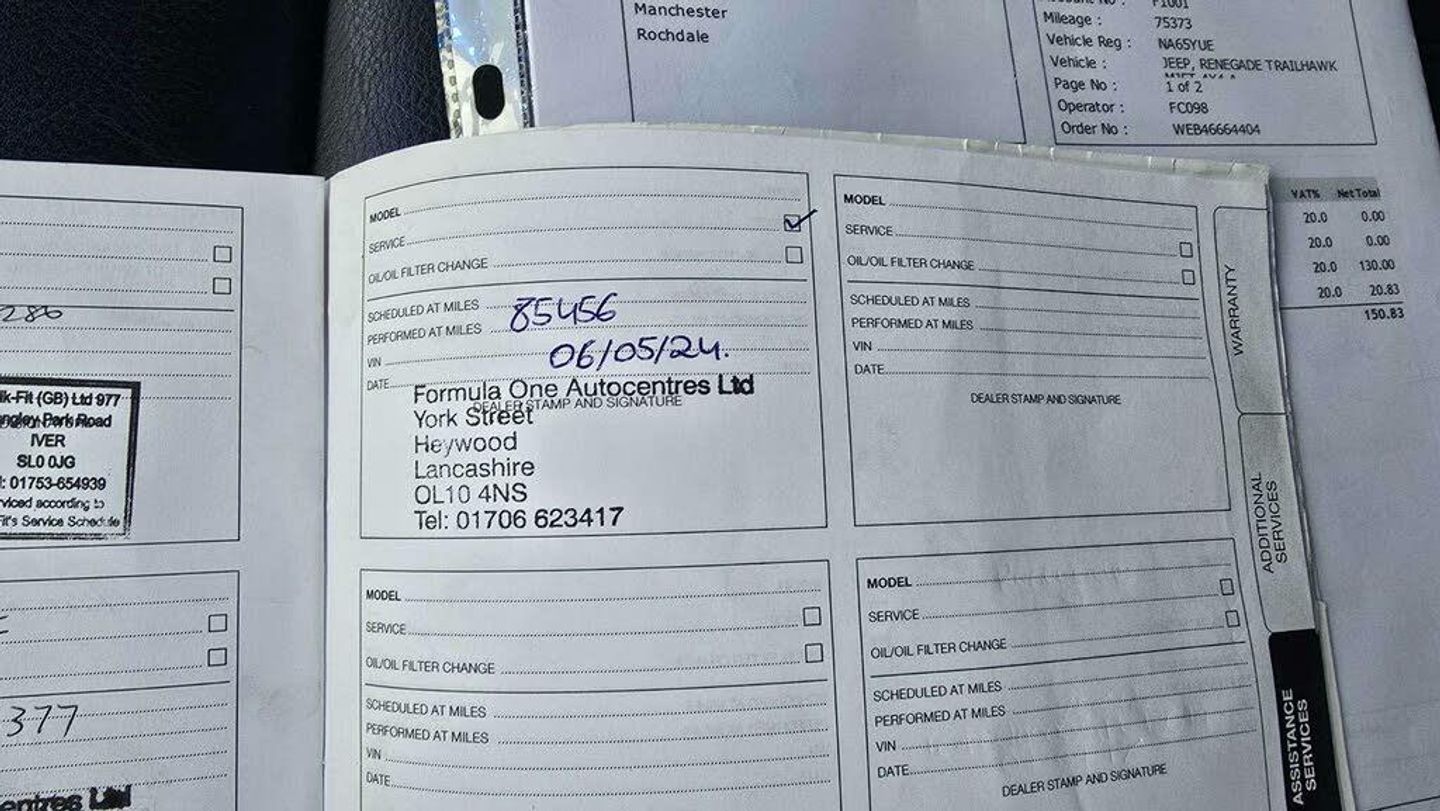 Manchester
Rochdale
Mileage : 75373
Vehicle Reg : NA65YUE
Vehicle : JEEP, RENEGADE TRAILHAWK
Page No : 1 of 2
Operator : FC098
Order No : WEB46664404
VAT% Net Total
20.0 0.00
20.0 0.00
20.0 130.00
20.0 20.83
150.83
286
k-Fit (GB) Ltd 977
Park Road
IVER
SL0 0JG
: 01753-654939
viced according to
Fit's Service Schedule
377
entres Ltd
MODEL
SERVICE
OIL/OIL FILTER CHANGE
SCHEDULED AT MILES
PERFORMED AT MILES 85456
VIN
DATE 06/05/24.
DEALER STAMP AND SIGNATURE
Formula One Autocentres Ltd
York Street
Heywood
Lancashire
OL10 4NS
Tel: 01706 623417
MODEL
SERVICE
OIL/OIL FILTER CHANGE
SCHEDULED AT MILES
PERFORMED AT MILES
VIN
DATE
DEALER STAMP AND SIGNATURE
MODEL
SERVICE
OIL/OIL FILTER CHANGE
SCHEDULED AT MILES
PERFORMED AT MILES
VIN
DATE
MODEL
SERVICE
OIL/OIL FILTER CHANGE
SCHEDULED AT MILES
PERFORMED AT MILES
VIN
DATE
DEALER STAMP AND SIGNATURE
WARRANTY
ADDITIONAL
SERVICES
ASSISTANCE
SERVICES